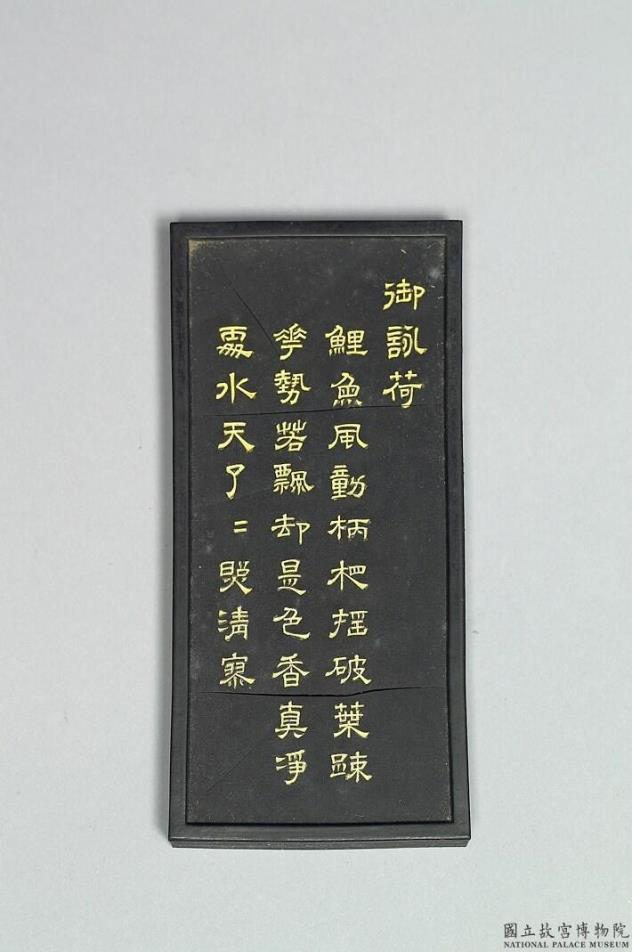 御詠荷
鯉魚風動柄杷搖破葉疎
花勢若飄却是色香真淨
處水天了〻照清寥
國立故宮博物院
NATIONAL PALACE MUSEUM